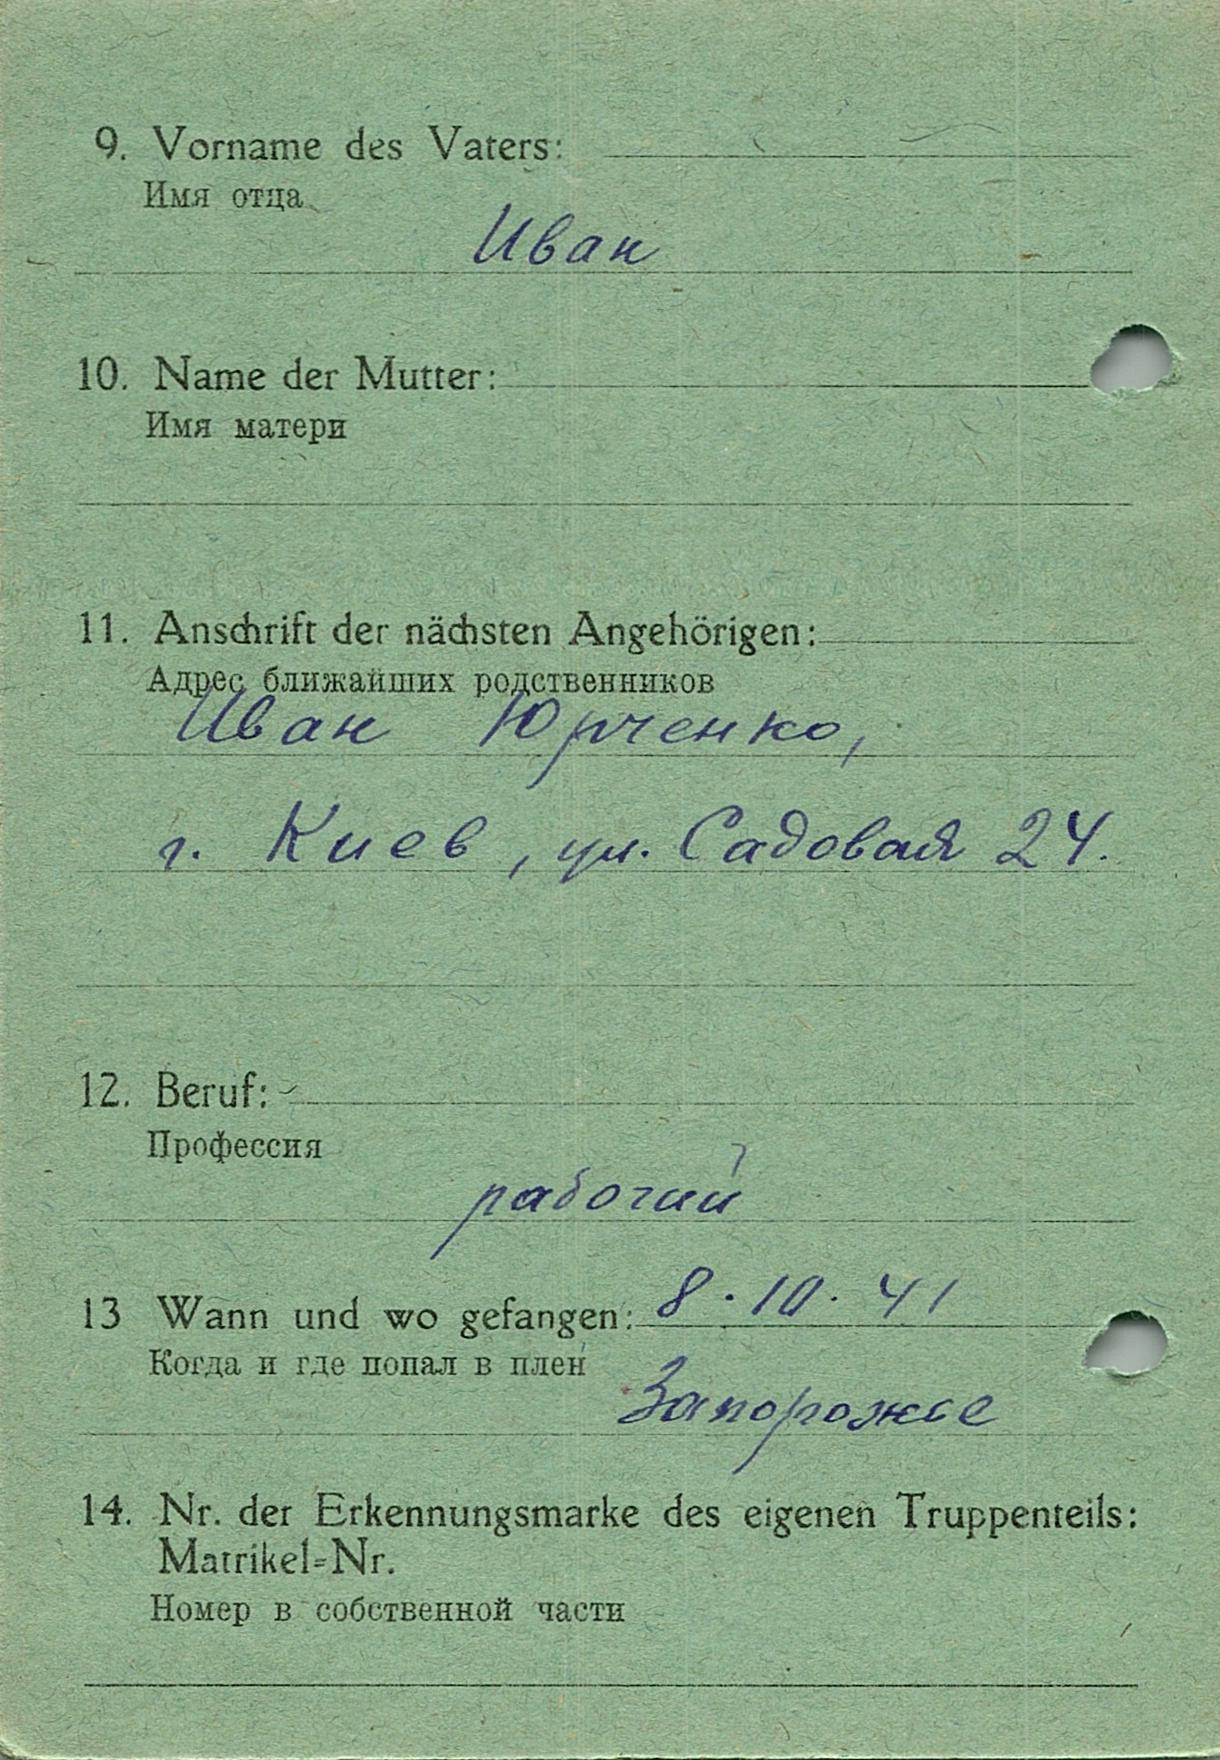 9. Vorname des Vaters:
Имя отца
Иван
10. Name der Mutter:
Имя матери
11. Anschrift der nächsten Angehörigen:
Адрес ближайших родственников
Иван Юрченко,
г. Киев, ул. Садовая 24.
12. Beruf:
Профессия
рабочий
13 Wann und wo gefangen: 8.10.41
Когда и где попал в плен
Запорожье
14. Nr. der Erkennungsmarke des eigenen Truppenteils:
Matrikel-Nr.
Номер в собственной части